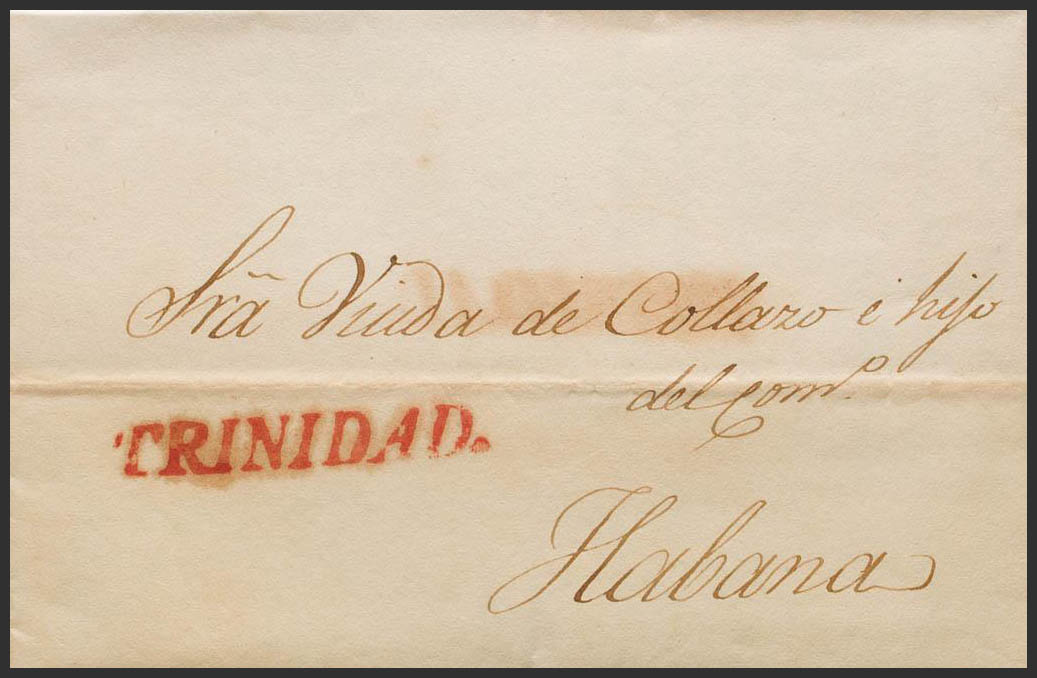 Srã Viuda de Collazo é hijo
del comº.
TRINIDAD.
Habana